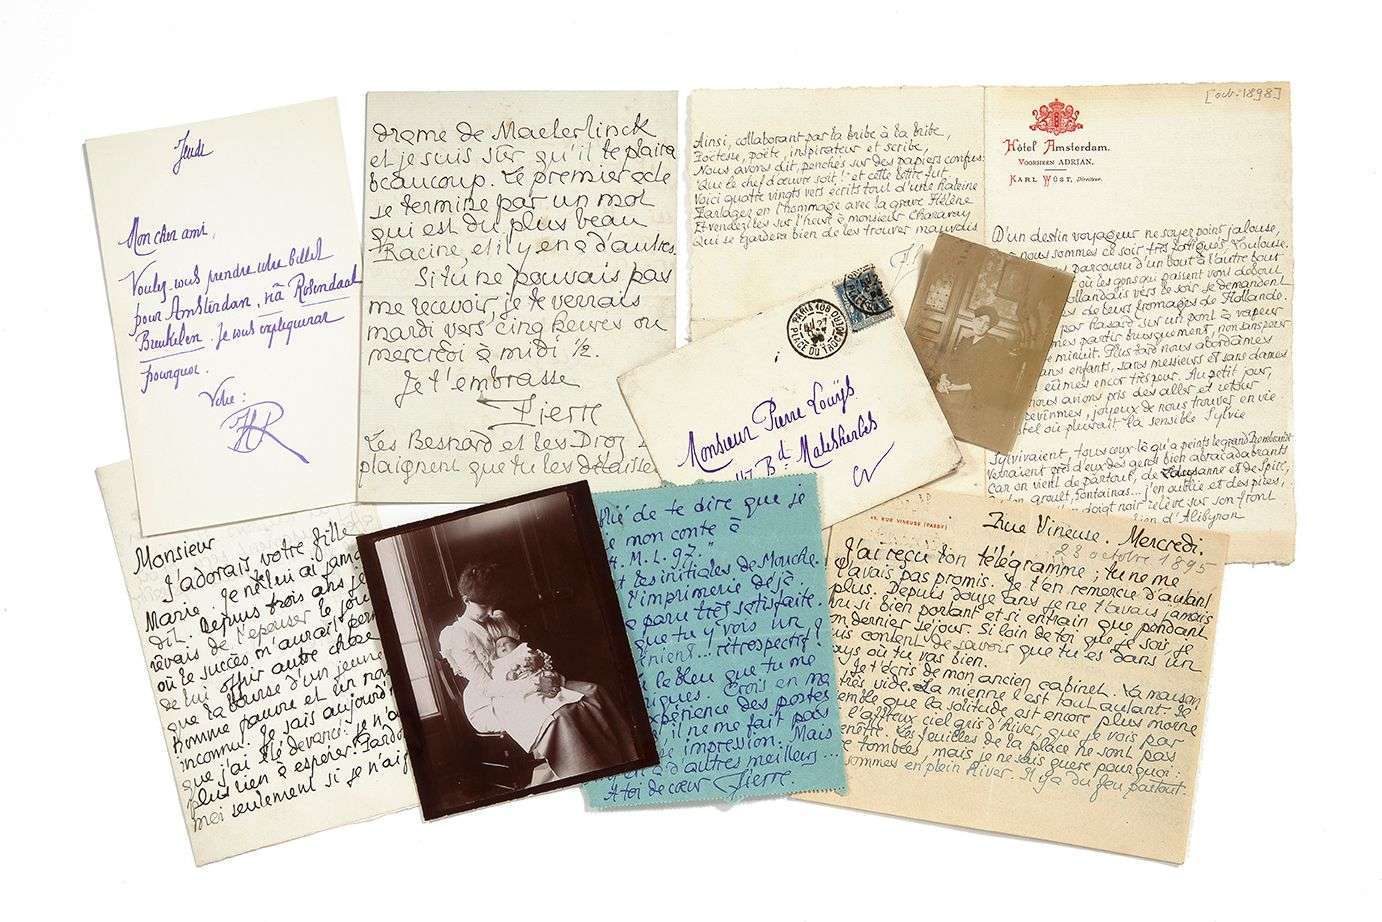 Jeudi
Mon cher ami,
Voulez-vous prendre votre billet
pour Amsterdam, via Rosendaal
Breukelen. Je vous expliquerai
pourquoi.
Votre :
HR
drame de Maeterlinck
et je suis sûr qu'il te plaira
beaucoup. Le premier acte
se termine par un mot
qui est du plus beau
Racine, et il y en a d'autres.
Si tu ne pouvais pas
me recevoir, je te verrais
mardi vers cinq heures ou
mercredi à midi ½.
Je t'embrasse
Pierre
Les Besnard et les Droz
plaignent que tu les délaisses
Ainsi, collaborant par la bribe à la bribe,
Poétesse, poète, inspirateur et scribe,
Nous avons dit, penchés sur des papiers confus:
Que le chef d'œuvre soit! et cette lettre fut
Voici quatre vingts vers écrits tout d'une haleine
Partagez en l'hommage avec la grave Hélène
Et vendez les sur l'heure à monsieur Charavay
Qui se gardera bien de les trouver mauvais
[oct. 1898]
Hôtel Amsterdam.
VOORHEEN ADRIAN.
KARL WÜST, Directeur.
D'un destin voyageur ne soyez point jalouse,
nous sommes ce soir très fatigués
parcouru d'un bout à l'autre bout
où les gens qui passent vont debout
Hollandais vers le soir se demandent
de leurs fromages de Hollande.
par hasard sur un pont à vapeur
mes partis brusquement, non sans peur
minuit. Plus tard nous abordâmes
sans enfants, sans messieurs et sans dames
eûmes encor très peur. Au petit jour,
nous avions pris des aller et retour,
revînmes, joyeux de nous trouver en vie
hôtel où pleurait la sensible Sylvie
Sylvivaient, tous ceux là qu'a peints le grand Rembrandt
Verraient près d'eux des gens bien abracadabrants
Car on vient de partout, de Lausanne et de Spire,
Fontainas... j'en oublie et des pires,
doigt noir relève sur son front
d'Alibyron
PARIS 108
PLACE DU TROCADÉRO
Monsieur Pierre Louÿs
147 Bd Malesherbes
EV
Monsieur
J'adorais votre fille
Marie. Je ne lui ai jamais
dit. Depuis trois ans je
rêvais de l'épouser le jour
où le succès m'aurait permis
de lui offrir autre chose
que la bourse d'un jeune
homme pauvre et un nom
inconnu. Je sais aujourd'hui
que j'ai été devancé. Je n'ai
plus rien à espérer. Pardonnez
moi seulement si je n'ai
oublié de te dire que je
mon conte à
M. L. 97."
les initiales de Mouche.
l'imprimerie déjà.
paru très satisfaite.
que tu y vois un
rétrospectif?
le bleu que tu me
Crois en ma
expérience des postes
il ne me fait pas
impression. Mais
d'autres meilleurs...
A toi de cœur Pierre.
RUE VINEUSE (PASSY)
Rue Vineuse. Mercredi.
23 octobre 1895
J'ai reçu ton télégramme ; tu ne me
l'avais pas promis. Je t'en remercie d'autant
plus. Depuis douze ans je ne t'avais jamais
vu si bien portant et si entrain que pendant
ton dernier séjour. Si loin de toi que je sois, je
suis content de savoir que tu es dans un
pays où tu vas bien.
Je t'écris de mon ancien cabinet. Ta maison
très vide. La mienne l'est tout autant. Je
semble que la solitude est encore plus morne
l'affreux ciel gris d'hiver, que je vois par
fenêtre. Les feuilles de la place ne sont pas
tombées, mais je ne sais guère pourquoi :
sommes en plein hiver. Il y a du feu partout.